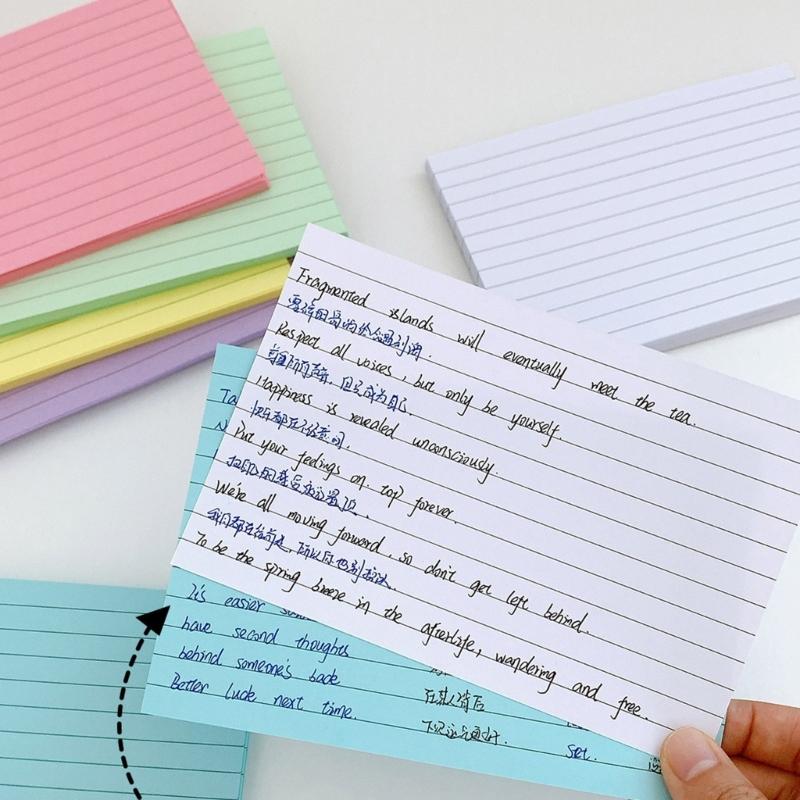 Fragmented islands will eventually meet the tea.
零碎的岛屿终会遇到
Respect all voices, but only be yourself.
尊重所有声音，但只成为自己.
Happiness is revealed unconsciously.
快乐都在不经意间.
Put your feelings on top forever.
把自己的感受放在最顶.
We're all moving forward, so don't get left behind.
我们都在往前走，所以你也别
To be the spring breeze in the afterlife, wandering and free.
Ta
It's easier
have second thoughts
behind someone's back
在某人背后
Better luck next time.
下次运气更好.
set.